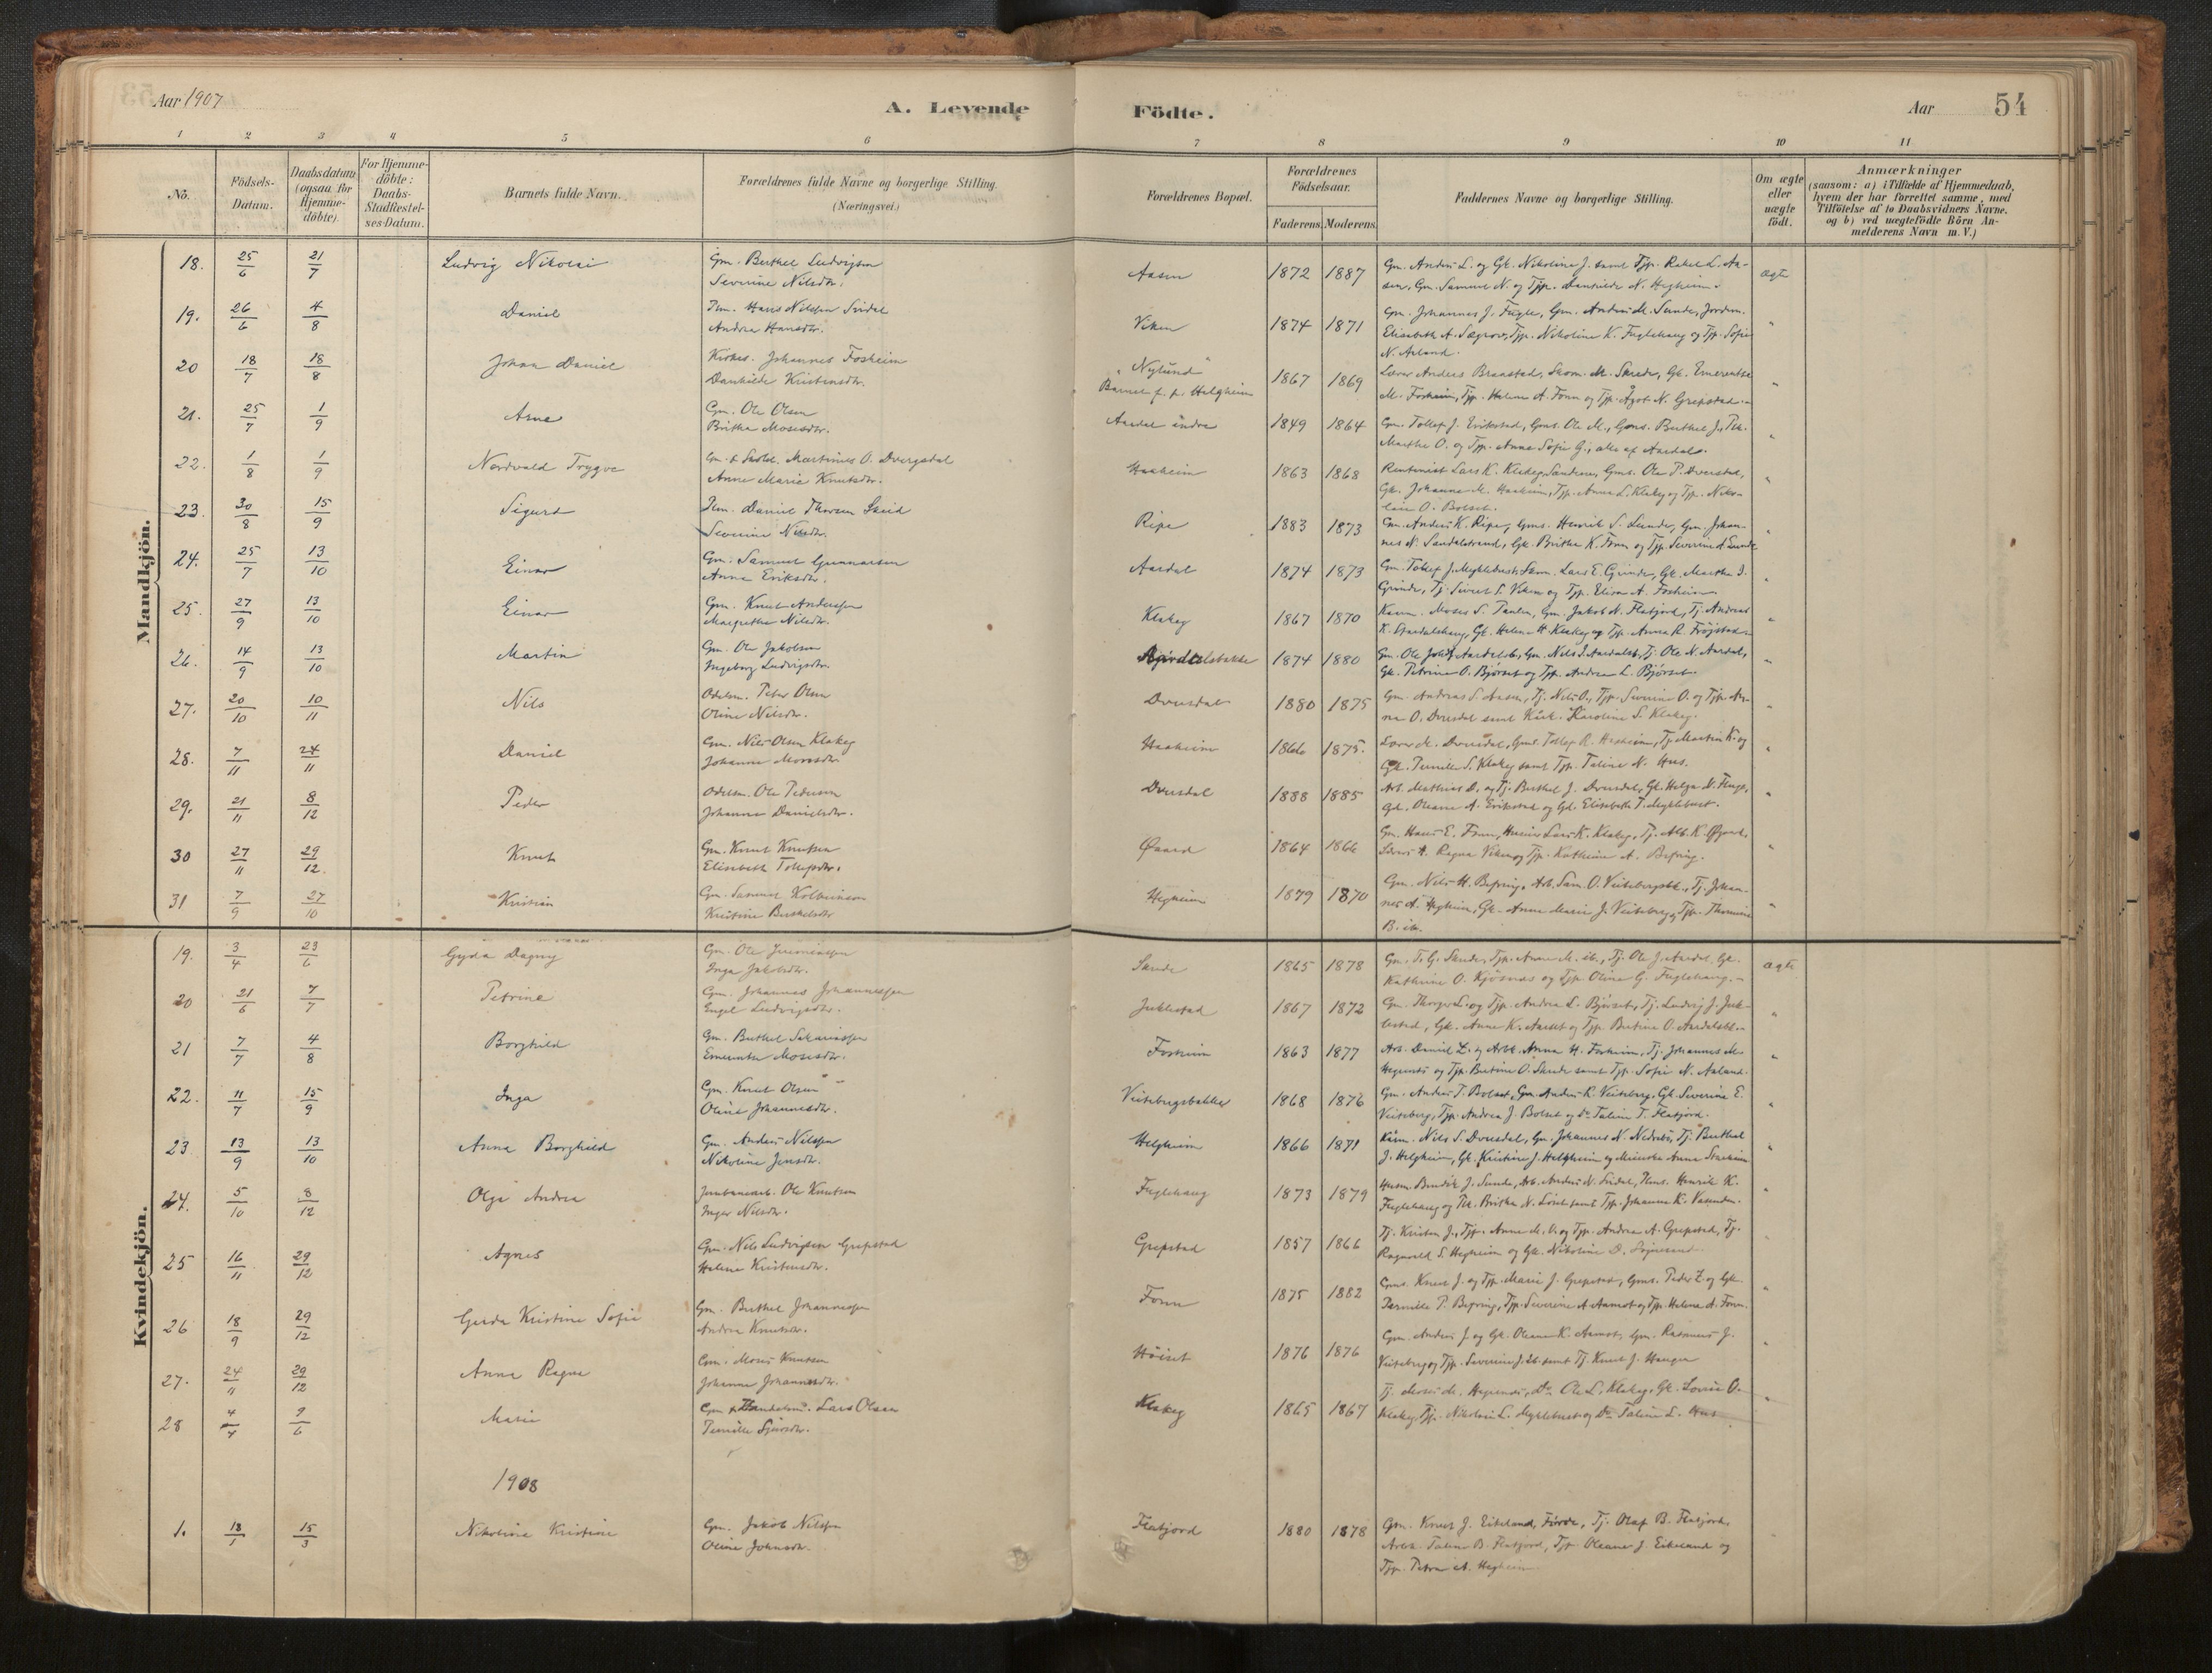 Aar 1907
A. Levende
Födte.
Aar
54
1 2 3 4 5 6 7 8 9 10 11
No.
Födsels-
Datum.
Daabsdatum
(ogsaa for
Hjemme-
döbte).
For Hjemme-
döbte:
Daabs-
Stadfæstel-
ses-Datum.
Barnets fulde Navn.
Forældrenes fulde Navne og borgerlige Stilling.
(Næringsvei.)
Forældrenes Bopæl.
Forældrenes
Födselsaar.
Faderens. Moderens.
Faddernes Navne og borgerlige Stilling.
Om ægte
eller
uægte
födt.
Anmærkninger
(saasom: a) i Tilfælde af Hjemmedaab,
hvem der har forrettet samme, med
Tilföielse af to Daabsvidners Navne.
og b) ved uægtefödte Börn An-
melderens Navn m. V.)
Mandkjön.
18. 25/6 21/7 Ludvig Nikolai Gm. Berthel Ludvigsen
Severine Nilsdtr.
Aasen 1872 1887 Gm. Anders L. og Gk. Nikoline J. samt Tjp. Rakel L. Aa-
sen, Gm. Samuel N. og Tjp. Danhilde N. Hegheim.
ægte
19. 26/6 4/8 Daniel Hans Nilssen
Andrea Hansdtr.
Viken 1874 1871 Gm. Johannes J. Fugle, Gm. Anders M. Sande, Jordm.
Elisabeth A. Sægrov, Tjp. Nikoline K. Fuglehaug og Tjp. Sofie
N. Aaland.
20 18/7 18/8 Johan Daniel Kirkes. Johannes Fosheim
Danhilde Kristensdtr.
"Nylund"
Barnet f. p. Helgheim
1867 1869 Lærer Anders Braastad, Skom. M. Skrede, Gk. Emerentse
M. Forheim, Tjp. Helene A. Fonn og Tjp. Ågot N. Grepstad.
21. 25/7 1/9 Arne Gm. Ole Olsen
Brithe Mosesdtr.
Aardal indre 1849 1864 Gm. Tollef J. Erikstad, Gms. Ole M., Gms. Berthel J.,
Marthe O. og Tjp. Anne Sofie G., alle af Aardal.
22. 1/8 1/9 Nordvald Trygve Martinus O. Dvergsdal
Anne Marie Knutsdtr.
Haaheim 1863 1868 Rentenist Lars K. Klakeg, Sandene, Gms. Ole P.
Gk. Johanne M. Haaheim, Tjp. Anna L. Klakeg og Tjp. Niko-
line O. Bolset.
23. 30/8 15/9 Sigurd Daniel Thorsen Skeid
Severine Nilsdtr.
Ripe 1883 1873 Gm. Anders K. Ripe, Gms. Henrik S. Sunde, Gm. Johan-
nes N. Sandalstrand, Gk. Brithe K. Fonn og Tjp. Severine A. Sunde
24. 25/7 13/10 Einar Gm. Samuel Gunnarsen
Anna Eriksdtr.
Aardal 1874 1873 Gm. Tollef J. Myklebust, Skom. Lars E. Grinde, Gk. Marthe J.
Grinde, Tj. Sivert S. Viken og Tjp. Elisa A. Fosheim
25. 27/9 13/10 Einar Gm. Knut Anderssen
Margrethe Nilsdtr.
Klakeg 1867 1870 Moses S. Gm. Jakob N. Flatjord, Tj. Andreas
K. Gk. Helene H. Klakeg og Tjp. Anna R.
26. 14/9 13/10 Martin Gm. Ole Jakobsen
Ingeborg Ludvigsdtr.
Aardalsbakke 1874 1880 Gm. Ole Gm. Nils J. Tj. Ole N. Aardal,
Gk. Petrine O. Bjørset og Tjp. Andrea L. Bjørset.
27. 20/10 10/11 Nils Odelsm. Peter Olsen
Oline Nilsdtr.
Dvesdal 1880 1875 Gm. Andreas S. Aasen, Tj. Nils O., Tjp. Severine O. og Tjp. An-
na O. Dvesdal samt Karoline S. Klakeg.
28. 7/11 24/11 Daniel Gm. Nils Olsen Klakeg
Johanne Monsdtr.
Haaheim 1866 1875. Lærer M. Gms. Tollef R. Haaheim, Tj. Martin K. og
Gk. Pernille S. Klakeg samt Tjp. Taline N. Hus.
29. 21/11 8/12 Peder Odelsm. Ole Pedersen
Johanne Danielsdtr.
Dvesdal 1888 1885 Arb. Mathias D. og Tj. Berthel J. Dvesdal, Gk. Helga N.
Gk. Oleane A. Erikstad og Gk. Elisabeth T. Myklebust.
30 27/11 29/12. Knut Gm. Knut Knutsen
Elisabeth Tollefsdtr.
Øvard 1864 1866 Gm. Hans E. Fonn, Lars K. Klakeg, Tj. Alb. K.
Ragna Viken og Tjp. Kathrine A. Befring.
31 7/9 27/10 Kristian Gm. Samuel Kolbeinsen
Kristine Berthelsdtr
Hegheim 1879 1870 Gm. Nils H. Befring, Arb. Sam. O. Tj. Johan-
nes A. Hegheim, Gk. Anne Marie J. Veiteberg, Tjp. Thomine
B. ib.
Kvindekjön.
19. 3/4 23/6 Gyda Dagny Gm. Ole Jeremiassen
Inga Jakobsdtr.
Sande 1865 1878 Gm. T. G. Sande, Tjp. Anne M. ib., Tj. Ole J. Aardal, Gk.
Kathrine O. Kjösnes og Tjp. Oline G. Fuglehaug.
ægte
20 21/6 7/7 Petrine Gm. Johannes Johannessen
Engel Ludvigsdtr.
Juklestad 1867 1872 Gm. Thorger L. og Tjp. Andrea L. Bjørset, Tj. Ludvig J. Juk-
lestad, Gk. Anne K. Aasset og Tjp. Bertine O.
21 7/7 4/8 Borghild Gm. Berthel Sakariassen
Emerentse Mosesdtr.
Fosheim 1863 1877 Arb. Daniel Z. og Arbk. Anna H. Fosheim, Tj. Johannes M.
Hegrenes og Tjp. Bertine O. Sande samt Tjp. Sofie N. Aaland.
22. 11/7 15/9 Inga Gm. Knut Olsen
Oline Johannesdtr.
Veitebergsbakken 1868 1876 Gm. Anders T. Bolset, Gm. Anders R. Veiteberg, Gk. Severine E.
Veiteberg, Tjp. Andrea J. Bolset og Do Taline T. Flatjord.
23 13/9 13/10 Anna Borghild Gm. Anders Nilssen
Nikoline Jensdtr.
Helgheim 1866 1871 Nils S. Dvesdal, Gm. Johannes N. Nedrebö, Tj. Berthel
J. Helgheim, Gk. Kristine J. Helgheim og Anna
24. 5/10 8/12 Olga Andrea Jernbanearb. Ole Knutsen
Inger Nilsdtr.
Fuglehaug 1873 1879 Husm. Bendik J. Sunde, Arb. Anders N. Henrik K.
Fuglehaug og Brithe N. samt Tjp. Johanne K.
25 16/11 29/12 Agnes Gm. Nils Ludvigsen Grepstad
Helene Kristensdtr.
Grepstad 1857 1866 Tj. Kristen J., Tjp. Anne M. og Tjp. Andrea A. Grepstad, Tj.
Ragnvald S. Hegheim og Gk. Nikoline D.
26 18/9 29/12 Gerda Kristine Sofie Gm. Berthel Johannessen
Andrea Knutsdtr.
Fonn 1875 1882 Gms. Knut J. og Tjp. Marie J. Grepstad, Gms. Peder Z. og Gk.
Pernille P. Befring, Tjp. Severine A. Aamot og Tjp. Helene A. Fonn.
27. 24/11 29/12 Anna Ragna Gm. Moses Knutsen
Johanne Johannesdtr.
Höiset 1876 1876 Gm. Anders J. og Gk. Oleane K. Aamot, Gm. Rasmus J.
Veiteberg og Tjp. Severine J. ib. samt Tj. Knut J. Haugen
28 4/7 9/6 Marie Gm. & Handelsm. Lars Olsen
Pernille Sjursdtr.
Klakeg 1865 1867 Tj. Moses M. Hegrenes, Do Ole L. Klakeg, Gk. Lovise O.
Klakeg, Tjp. Nikoline L. Myklebust og Do Taline L. Hus
1908
1. 13/1 15/3 Nikoline Kristine Gm. Jakob Nilssen
Oline Johnsdtr.
Flatjord 1880 1878 Gm. Knut J. Eikeland, Förde, Tj. Olaf B. Flatjord,
Arbk. Taline B. Flatjord, Tjp. Oleane J. Eikeland og
Tjp. Petra A. Hegheim